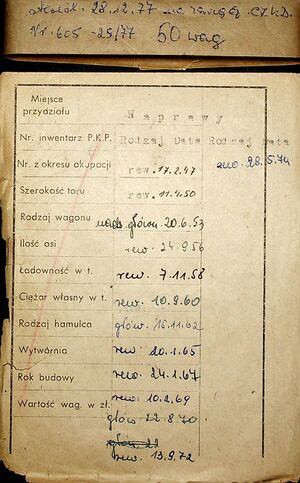 28.12.77 na
Nr. 605-25/77 50 wag
Miejsce
przydziału
Naprawy
Nr. inwentarz P.K.P. Rodzaj Data Rodzaj Data
Nr. z okresu okupacji rew. 17.2.47 28.5.74
Szerokość toru rew. 11.4.50
Rodzaj wagonu główn. 20.6.53
Ilość osi rew. 24.9.56
Ładowność w t. rew. 7.11.58
Ciężar własny w t. rew. 10.9.60
Rodzaj hamulca główn. 15.11.62
Wytwórnia rew. 20.1.65
Rok budowy rew. 24.1.67
Wartość wag. w zł. rew. 10.2.69
główn 22.8.70
rew. 13.9.72